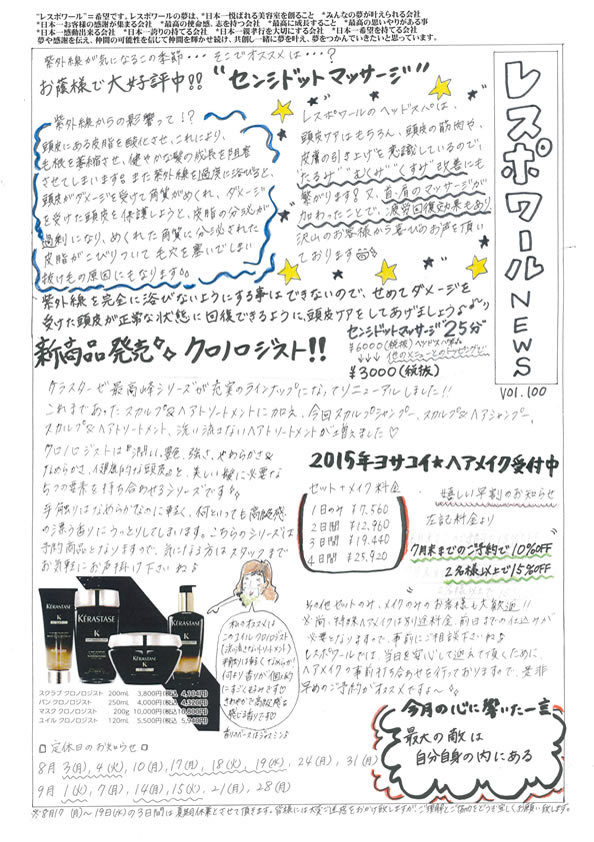 "レスポワール"=希望です。レスポワールの夢は、*日本一悦ばれる美容室を創ること　*みんなの夢が叶えられる会社
*日本一お客様の感謝が集まる会社　*最高の使命感、志を持つ会社　*最高に成長すること　*最高の思いやりがある事
*日本一感動出来る会社　*日本一誇りの持てる会社　*日本一親孝行を大切にする会社　*日本一希望を持てる会社
夢や感謝を伝え、仲間の可能性を信じて仲間を輝かせ続け、共創し一緒に夢を叶え、夢をつかんでいきたいと思っています。
レスポワールNEWS
VOl.100
紫外線が気になるこの季節・・・そこでオススメは・・・?
お蔭様で大好評中!! "センシドットマッサージ"
紫外線からの影響って!?
頭皮にある皮脂を酸化させ、これにより、
毛根を萎縮させ、健やかな髪の成長を阻害
させてしまいます。また紫外線を過度に浴びると、
頭皮がダメージを受けて角質がめくれ、ダメージ
を受けた頭皮を保護しようと、皮脂の分泌が
過剰になり、めくれた角質に分泌された
皮脂がこびりついて毛穴を塞いでしまい
抜け毛の原因にもなります。
レスポワールのヘッドスパは、
頭皮ケアはもちろん、頭皮の筋肉や、
皮膚の引き上げを意識しているので、
たるみ むくみ くすみ 改善にも
繋がります!又、首・肩のマッサージが
加わったことで、疲労回復効果もあり、
沢山のお客様から喜びのお声を頂い
ております
紫外線を完全に浴びないようにする事はできないので、せめてダメージを
受けた頭皮が正常な状態に回復できるように、頭皮ケアをしてあげましょう
センシドットマッサージ25分
¥6000(税抜)
↓↓↓他のメニューとのトッピングで
¥3000(税抜)
新商品発売 クロノロジスト!!
ケラスターゼ最高峰シリーズが充実のラインナップになってリニューアルしました!!
これまであったスカルプ&ヘアトリートメントに加え、今回スカルプシャンプー、スカルプ&ヘアシャンプー、
スカルプ&ヘアトリートメント、洗い流さないヘアトリートメントが増えました♡
クロノロジストは『潤い、艶、強さ、やわらかさ&
なめらかさ、健康的な頭皮』と、美しい髪に必要な
5つの要素を持ち合わせるシリーズです。
手触りはなめらかなのに軽く、何といっても高級感
の漂う香りにうっとりしてしまいます。こちらのシリーズは
予約商品となりますので、気になる方はスタッフまで
お気軽にお声掛け下さいね♪
2015年ヨサコイ★ヘアメイク受付中
セット+メイク料金
1日のみ ¥7,560
2日間 ¥12,960
3日間 ¥19,440
4日間 ¥25,920
嬉しい早割のお知らせ
左記料金より
7月末までのご予約で10%OFF
2名様以上で15%OFF
その他セットのみ、メイクのみのお客様も大歓迎!!
※尚、特殊ヘアメイクは別途料金、前日までの仕込みが
必要となりますので、事前にご相談下さいね♪
レスポワールでは、当日を安心して迎えて頂くために、
ヘアメイクの事前打ち合わせを行っておりますので、是非
早めのご予約がオススメですよ～
KÉRASTASE
KÉRASTASE
KÉRASTASE
スクラブ クロノロジスト 200mℓ 3,800円(税込 4,104円)
バン クロノロジスト 250mℓ 4,000円(税込 4,320円)
マスク クロノロジスト 200g 10,000円(税込10,800円)
ユイル クロノロジスト 120mℓ 5,500円(税込 5,940円)
私のオススメは
このユイルクロノロジスト
(洗い流さないトリートメント)
手触りは軽くてなめらか
何より香りが個人的
にすごく好みです♡
さわやかで高級感を
感じる香りです
香りのベースはジャスミン♪
□定休日のお知らせ□
8月 3(月), 4(火), 10(月), 17(月), 18(火), 19(水), 24(月), 31(月)
9月 1(火), 7(月), 14(月), 15(火), 21(月), 28(月)
今月の心に響いた一言
最大の敵は
自分自身の内にある
※8月17(月)～19日(水)の3日間は夏期休業とさせて頂きます。皆様には大変ご迷惑をおかけ致しますが、ご理解とご協力をどうぞ宜しくお願い致します。